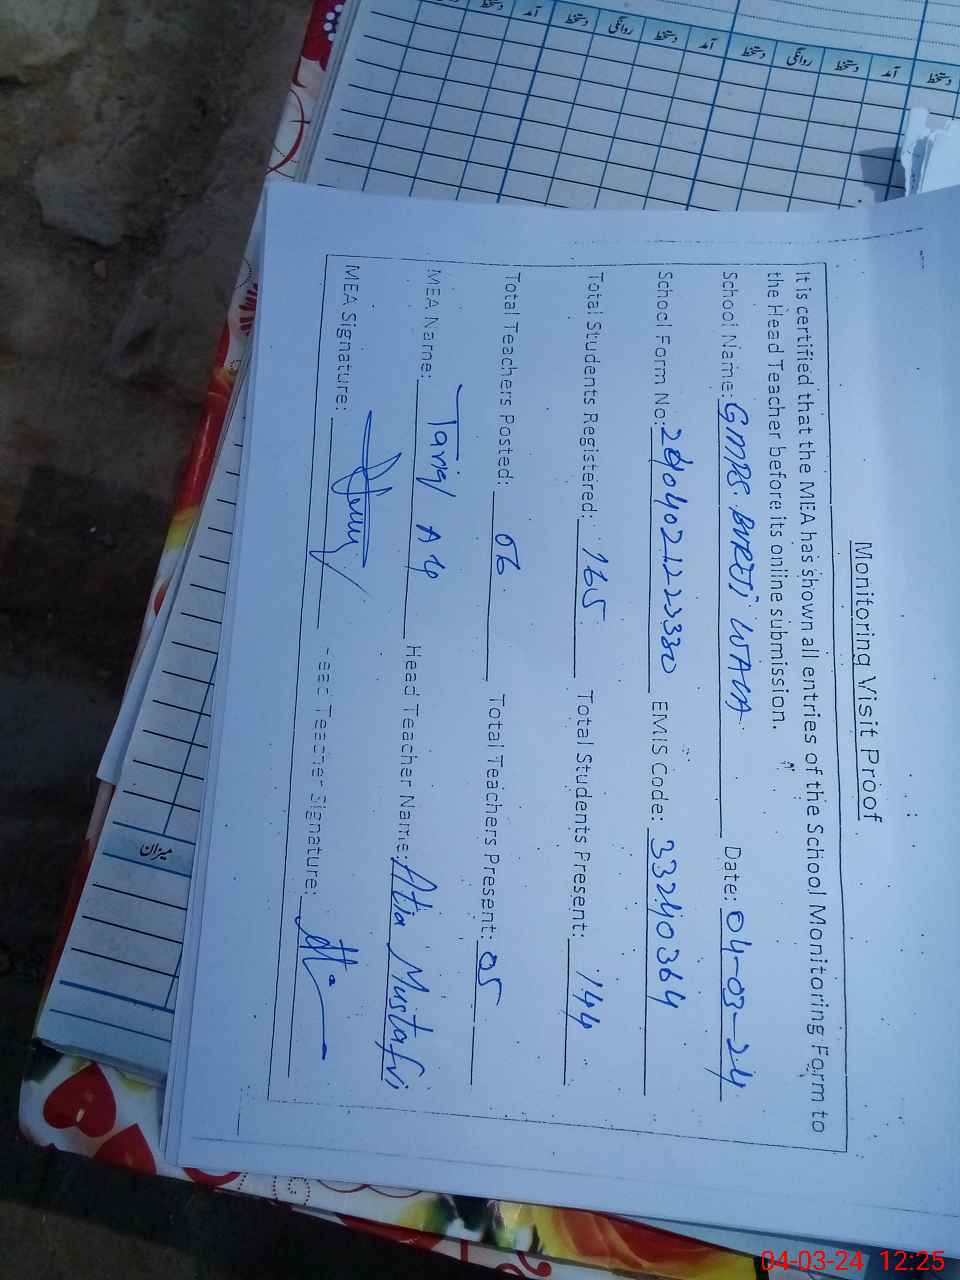 دستخط آمد دستخط روانگی دستخط آمد دستخط روانگی دستخط آمد دستخط
Monitoring Visit Proof
It is certified that the MEA has shown all entries of the School Monitoring Form to
the Head Teacher before its online submission.
School Name: GMPS. BURJI WALA Date: 04-03-24
School Form No: EMIS Code: 33240364
Total Students Registered: 165 Total Students Present: 144
Total Teachers Posted: 06 Total Teachers Present: 05
MEA Name: Tariq Head Teacher Name: Atia
MEA Signature: Head Teacher Signature:
میزان
04-03-24 12:25